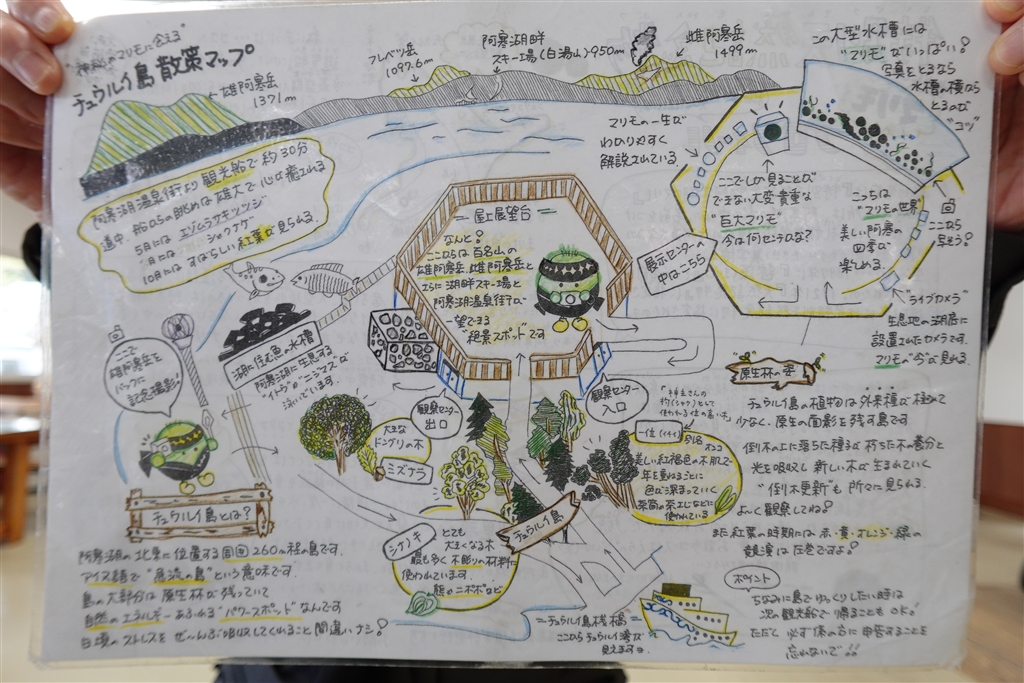 "神秘のマリモに会える"
チュウルイ島 散策マップ
雄阿寒岳
1371m
フレベツ岳
1097.6m
阿寒湖畔
スキー場(白湯山)950m
雌阿寒岳
1499m
この大型水槽には
"マリモ"がいっぱい!
写真をとるなら
水槽の横なら
とるのが
"コツ"
阿寒湖温泉街より観光船で約30分
道中、船からの眺めは雄大で心が癒される
5月には エゾムラサキツツジ
月には シャクナゲ
10月には すばらしい紅葉が見られる。
マリモの一生が
わかりやすく
解説されている。
ここでしか見ることが
できない大変貴重な
"巨大マリモ"
今は何センチかな?
こっちは
"マリモの世界"
美しい阿寒の
四季が
楽しめる。
ここなら
見よう!
展示センターの
中はこちら
"ライブカメラ"
生息地の湖底に
設置されたカメラです。
マリモの"今"が見れる。
屋上展望台
なんと!
ここからは百名山の
雄阿寒岳、雌阿寒岳と
さらに湖畔スキー場と
阿寒湖温泉街が
一望できる
"絶景スポット"です
湖に住む魚の水槽
阿寒湖に生息する
"イトウ"や"ニジマス"が
泳いでいます。
ここで
雄阿寒岳を
バックに
記念撮影!
観察センター
出口
観察センター
入口
大きな
ドングリの木
ミズナラ
シナノキ
とても
大きくなる木
最も多く木彫りの材料に
使われています。
熊やニポポなど
"神主さんの
杓(シャク)として
使われる位の高い木"
一位(イチイ)
別名
オンコ
美しい紅褐色の木肌で
年を重ねるごとに
色が深まっていく
茶筒の茶こしなどに
使われている
チュウルイ島
原生林の姿
チュウルイ島の植物は外来種が極めて
少なく、原生の面影を残す島です
倒木の上に落ちた種子が朽ちた木の養分と
光を吸収し新しい木が生まれていく
"倒木更新"も所々に見られる。
よーく観察してね!
また紅葉の時期には 赤・黄・オレンジ・緑の
競演は圧巻ですよ!
チュウルイ島とは?
阿寒湖の北東に位置する周囲260m程の島です。
アイヌ語で"急流の島"という意味です。
島の大部分は原生林が残っていて
自然のエネルギーあふれる"パワースポット"なんです
日頃のストレスをぜ〜んぶ吸収してくれること間違いナシ!
=チュウルイ島桟橋=
ここからチュウルイ湾が
見えます。
ポイント
ちなみに島でゆっくりしたい時は
次の観光船で帰ることもOK!
ただし必ず係の方に申告することを
忘れないで!!